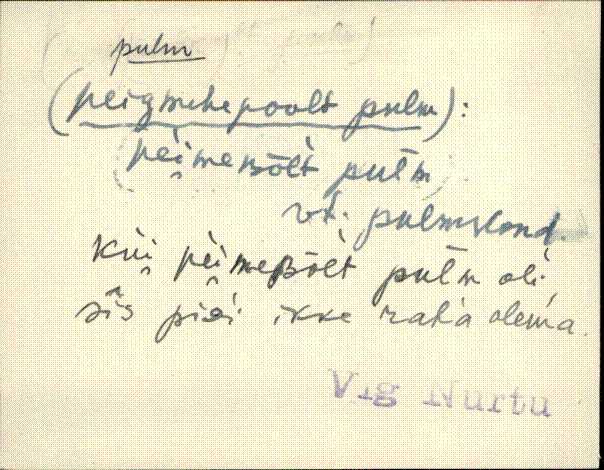 pulm
(peigmehepoolt pulm):
pei̯meʙòlt pul̄m
vt. pulmkond.
Kui̯ pei̯meʙòlt pul̄m oli,
sîs piɈi ikke raha olema.
Vig Nurtu